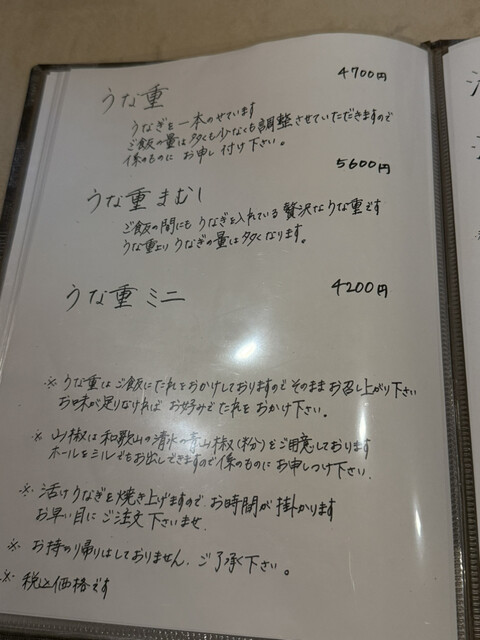 うな重
4700円
うなぎを一本のせています
ご飯の量は多くも少なくも調整させていただきますので
係のものに お申し付け下さい。
うな重まむし
5600円
ご飯の間にも うなぎを入れている 贅沢なうな重です
うな重より うなぎの量は多くなります。
うな重ミニ
4200円
※ うな重はご飯にたれをおかけしておりますので そのままお召し上がり下さい
お味が足りなければ お好みでたれを おかけ下さい。
※ 山椒は和歌山の清水の青山椒(粉)をご用意しております
ホールをミルでもお出しできますので係のものに お申しつけ下さい。
※ 活けうなぎを焼き上げますので、お時間が掛かります
お早い目に ご注文 下さいませ.
※ お持ち帰りはしておりません. ご了承下さい。
※ 税込価格です